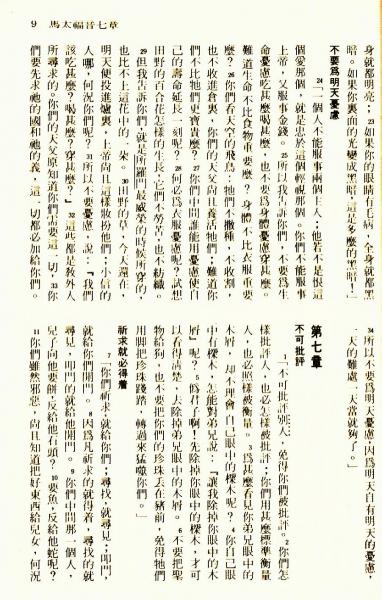 9 馬太福音七章
身就都明亮。23如果你的眼睛有毛病，全身就都黑
暗。如果你裏面的光變成黑暗，這是多麼的黑暗！」
不要爲明天憂慮
24「一個人不能服事兩個主人；他若不是恨這
個愛那個，就是忠於這個輕視那個。你們不能服事
上帝，又服事金錢。25所以我告訴你們，不要爲生
命憂慮吃甚麼喝甚麼，也不要爲身體憂慮穿甚麼。
難道生命不比食物重要麼？身體不比衣服重要
麼？26你們看天空的飛鳥：牠們不撒種，不收割
也不收進倉裏，你們的天父尚且養活牠們；難道你
們不比牠們更寶貴麼？27你們中間誰能用憂慮使自
己的壽命延長一刻呢？28何必爲衣服憂慮呢？試想
田野的百合花怎樣的生長；它們不勞苦，也不紡織。
29但我告訴你們，就是所羅門最威榮的時候所穿的，
也比不上這花中的一朵。30田野的草，今天還在，
明天便投進爐裏，上帝尚且這樣妝扮他們；小信的
人哪，何況你們呢？31所以不要憂慮，說：『我們
該吃甚麼？喝甚麼？穿甚麼？』32這些都是教外人
所尋求的。你們的天父原知道你們需要這一切，33你
們要先求祂的國和祂的義，這一切都必加給你們。
34所以不要爲明天憂慮，因爲明天自有明天的憂慮，
一天的難處一天當就夠了。」
第七章
不可批評
1「不可批評別人，免得你們被批評。2你們怎
樣批評人，也必怎樣被批評；你們用甚麼標準衡量
人，也必照樣被衡量。3爲甚麼看見你弟兄眼中的
木屑，却不理會自己眼中的樑木呢？4你自己眼
中有樑木，怎能對弟兄說：『讓我除掉你眼中的木
屑』呢？5僞君子啊！先除掉你眼中的樑木，才可
以看得清楚，去除掉弟兄眼中的木屑。6不要把聖
物給狗，也不要把你們的珍珠丟在豬前，免得牠們
用脚把珍珠踐踏，轉過來猛噬你們。」
祈求就必得着
7「你們祈求，就給你們；尋找，就尋見；叩門，
就給你們開門。8因爲凡祈求的就得着，尋找的就
尋見，叩門的就給他開門。9你們中間那一個人，
兒子向他要餅，反給他石頭？10要魚，反給他蛇呢？
11你們雖然邪惡，尚且知道把好東西給兒女，何況